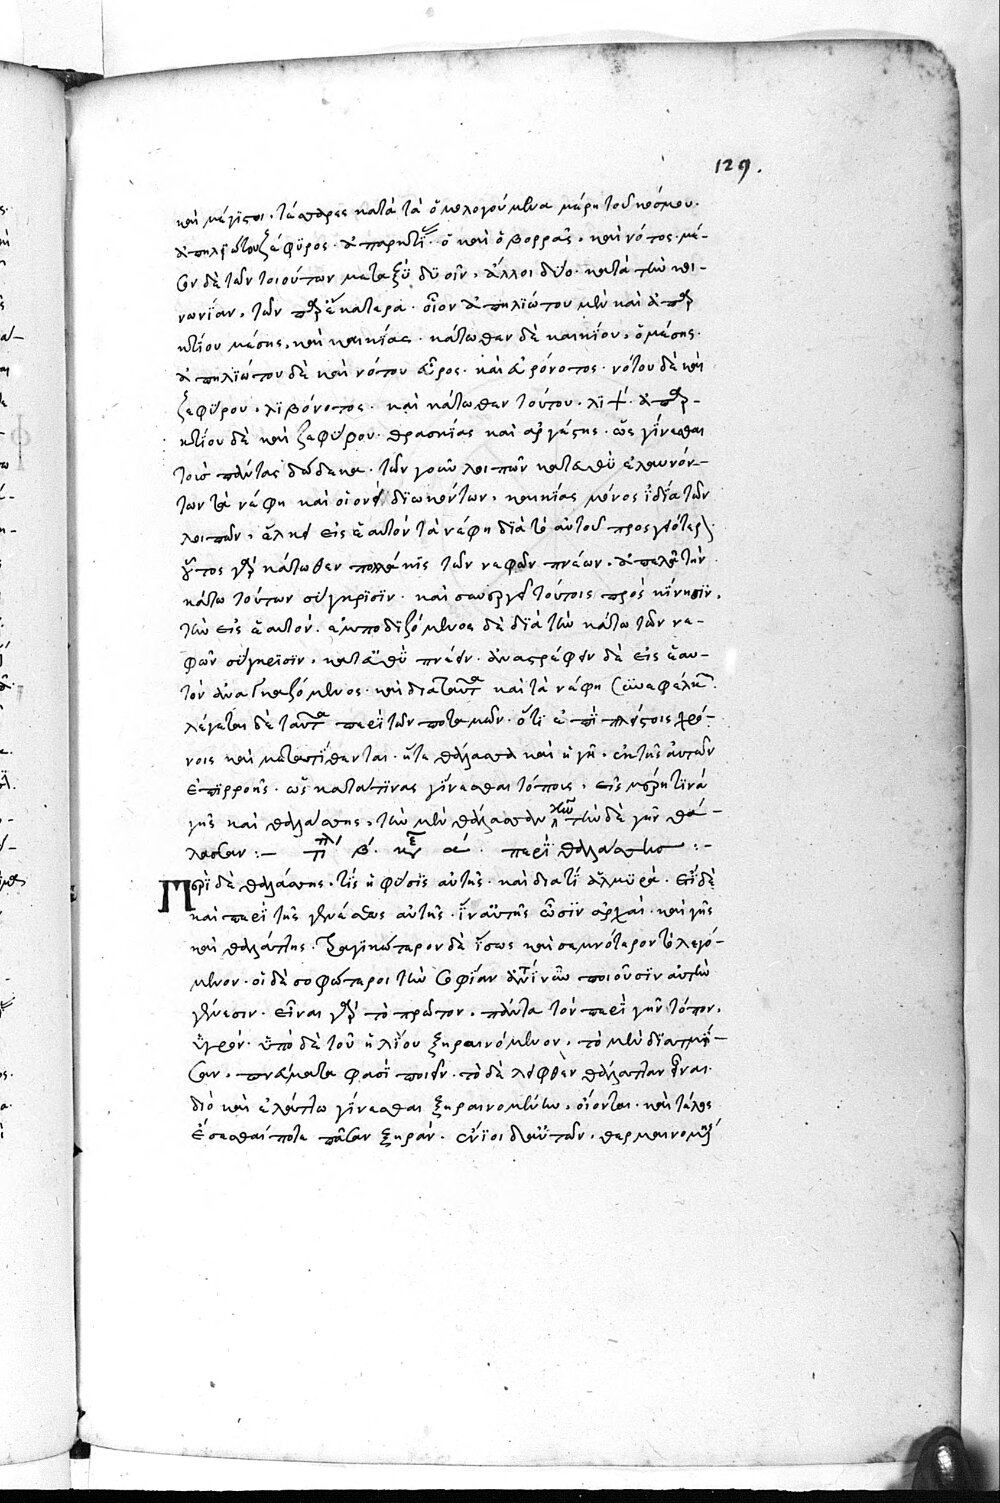 129.
καὶ μέγιστοι, τέσσαρες κατὰ τὰ ὁμολογούμενα μέρη τοῦ κόσμου.
ἀπηλιώτου ζέφυρος. ἀπαρκτί. ὁ καὶ ὁ βορρᾶς. καὶ νότος. μέ-
σον δὲ τῶν τοιούτων μεταξὺ δυοῖν, ἄλλοι δύο. κατὰ τὴν κοι-
νωνίαν, τῶν παρ' ἑκάτερα. οἷον ἀπηλιώτου μὲν καὶ ἀπαρ
κτίου μέσης, καὶ καικίας. κάτωθεν δὲ καικίου, ὁ μέσης.
ἀπηλιώτου δὲ καὶ νότου εὖρος. καὶ εὐρόνοτος. νότου δὲ καὶ
ζεφύρου, λιβόνοτος. καὶ κάτωθεν τούτου, λίψ. ἀπαρ-
κτίου δὲ καὶ ζεφύρου. θρασκίας καὶ ἀργέστης. ὡς γίνεσθαι
τοὺς πάντας δώδεκα. τῶν γοῦν λοιπῶν κατευθὺ ἐλαυνόν-
των τὰ νέφη καὶ οἱονεὶ διωκόντων, καικίας μόνος ἰδίᾳ τῶν
λοιπῶν, ἕλκει εἰς ἑαυτὸν τὰ νέφη διὰ τὸ αὐτοῦ προσγειότερον
οὗτος γὰρ κάτωθεν πολλάκις τῶν νεφῶν πνέων, ἀπελᾷ τὴν
κάτω τούτων σύγκρισιν. καὶ συνεργεῖ τούτοις πρὸς κίνησιν,
τὴν εἰς ἑαυτόν. ἐμποδιζόμενος δὲ διὰ τὴν κάτω τῶν νε-
φῶν σύγκρισιν, κατευθὺ πνέειν, ἀναστρέφειν δὲ εἰς ἑαυ-
τὸν ἀναγκαζόμενος. καὶ διὰ ταῦτα καὶ τὰ νέφη συνεφέλκεται.
λέγεται δὲ ταῦτα περὶ τῶν ποταμῶν. ὅτι ἐπὶ πλείστοις χρό-
νοις καὶ μετατίθενται. ἥτε θάλασσα καὶ ἡ γῆ, ἐκ τῆς αὐτῶν
ἐπιρροῆς. ὡς κατά τινας γίνεσθαι τόπους, εἰς μέρη τινὰ
γῆς καὶ θαλάσσης, τὴν μὲν θάλασσαν γῆν τὴν δὲ γῆν θά-
λασσαν :– περὶ θαλάσσης :–
Περὶ δὲ θαλάσσης, τίς ἡ φύσις αὐτῆς. καὶ διατί ἁλμυρά. εἶ δὲ
καὶ περὶ τῆς γενέσεως αὐτῆς. ἵν' αὐτῆς ὦσιν ἀρχαὶ. καὶ γῆς
καὶ θαλάττης. τραγικώτερον δὲ ἴσως καὶ σεμνότερον τὸ λεγό-
μενον. οἱ δὲ σοφώτεροι τὴν σοφίαν ἀνθρωπίνην ποιοῦσιν αὐτῶν
γένεσιν. εἶναι γὰρ τὸ πρῶτον, πάντα τὸν περὶ γῆν τόπον,
ὑγρόν. ὑπὸ δὲ τοῦ ἡλίου ξηραινόμενον, τὸ μὲν διατμί-
σαν, πνεύματα φασὶ ποιεῖν. τὸ δὲ λειφθὲν θάλατταν εἶναι.
διὸ καὶ ἐλάττω γίνεσθαι ξηραινομένην, οἴονται. καὶ τέλος
ἔσεσθαί ποτε πᾶσαν ξηράν. ἔνιοι δ' αὐτῶν, θερμαινομένης